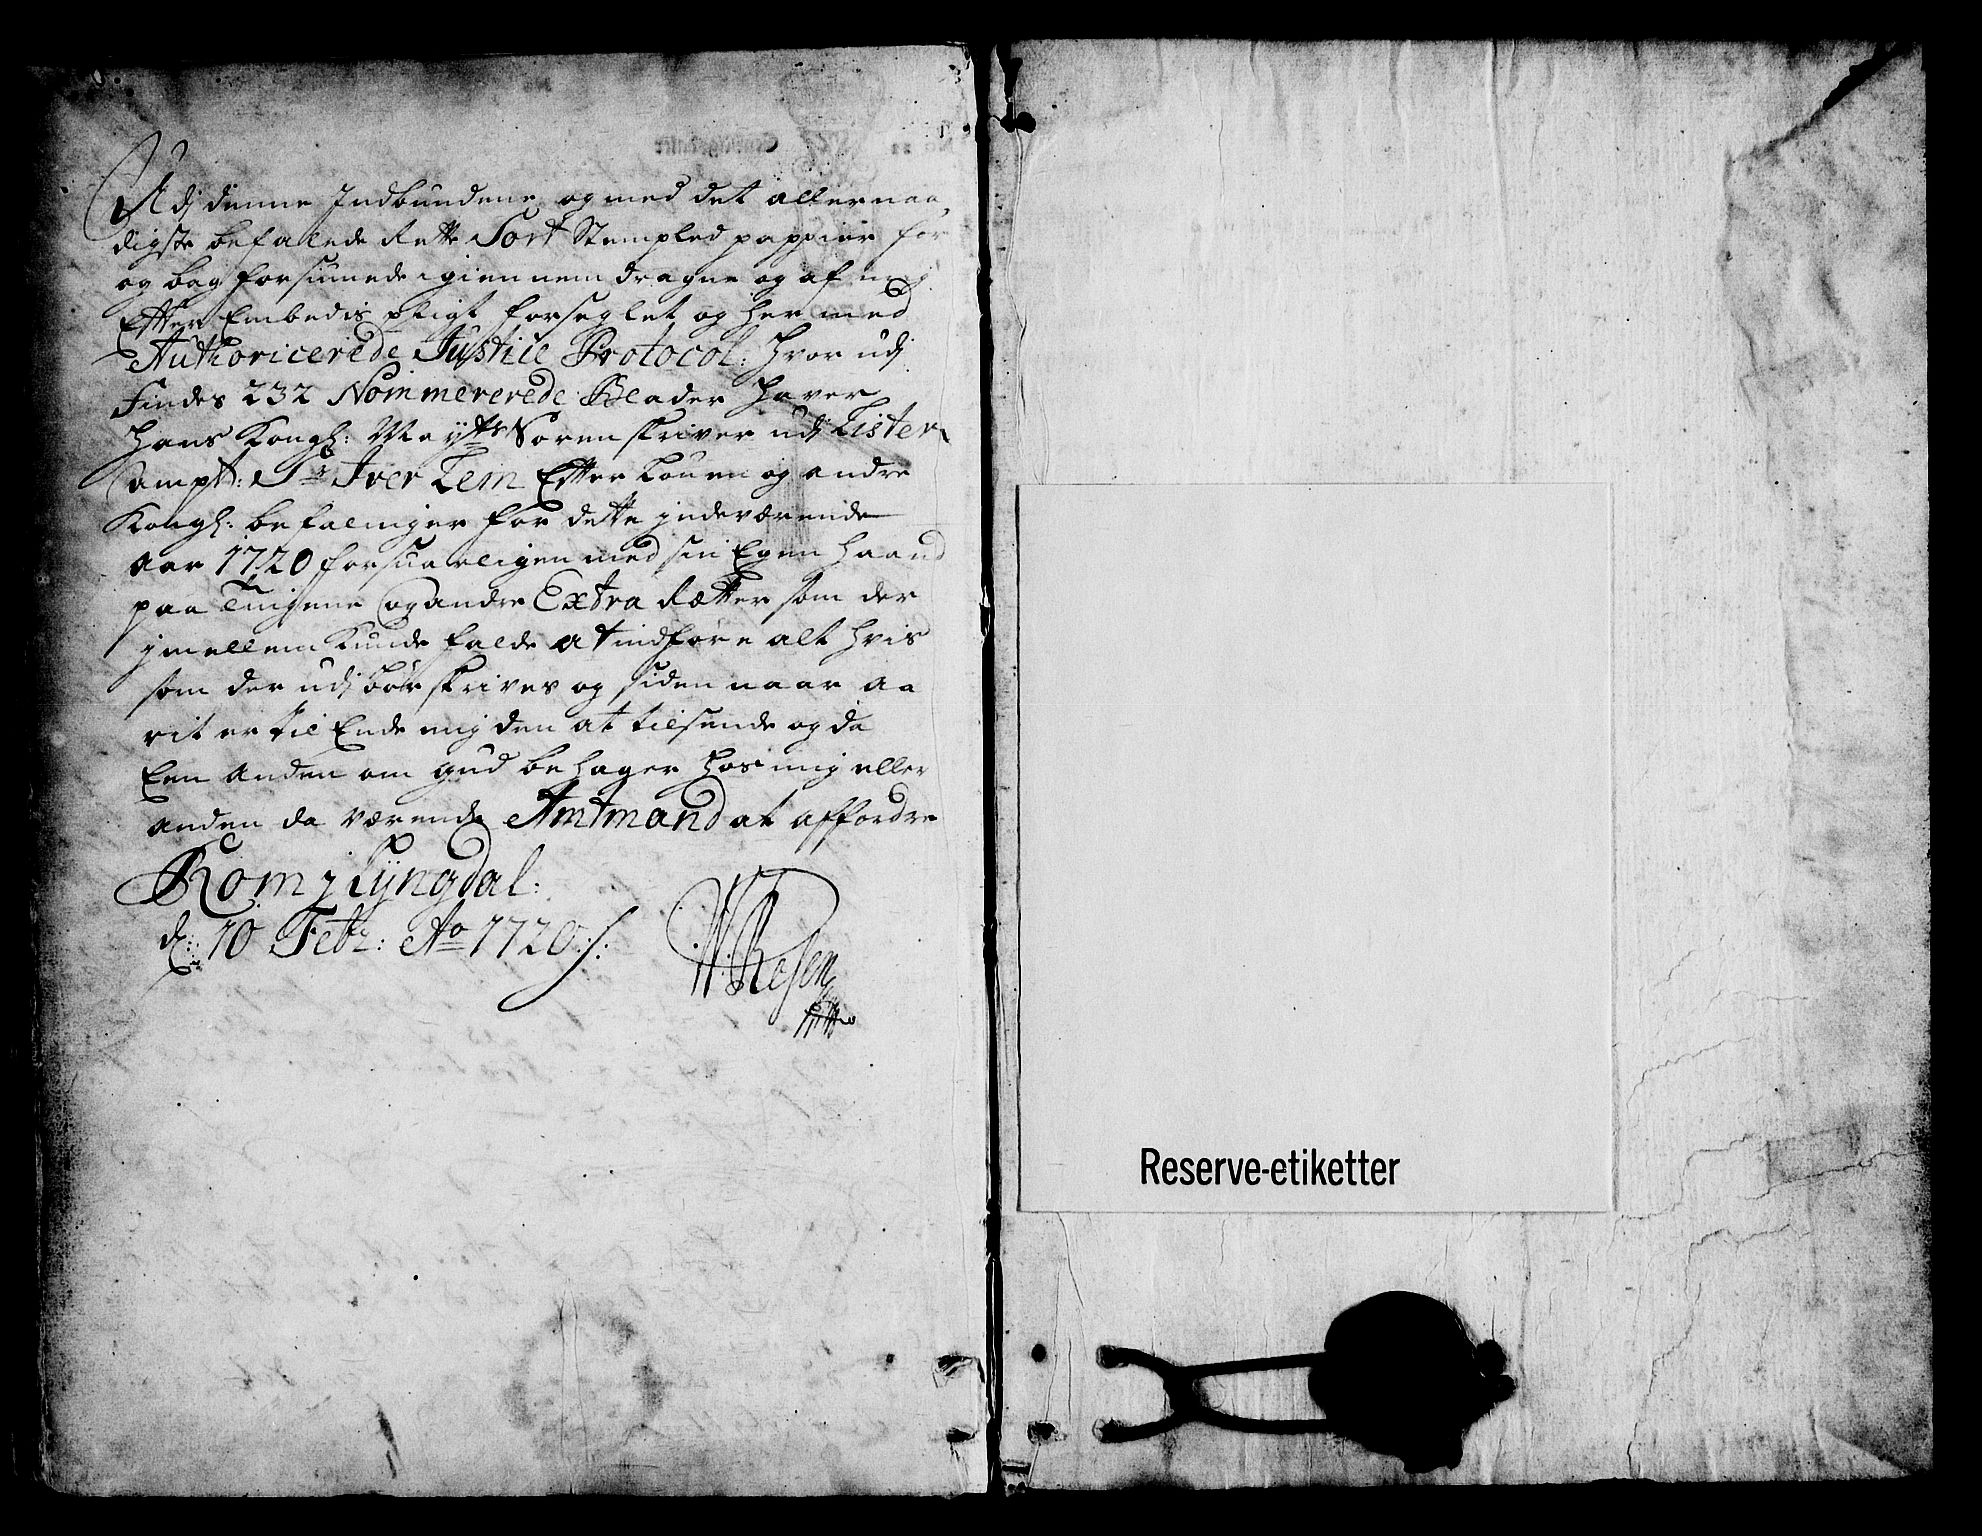 Udj denne Indbundene og med det allernaa,
digste befalede Rette Sort Stempled pappiir for
og bag forsiunede igiennem dragne og af mig
Efter Embedis pligt forseglet og her med
Authoricerede Justice Protocol: hvor udj
findes 232 Nommererede Blader haver
Hans Kongl: Mayts Sorenskriver udj Lister
ampt: Sr Iver Lem Efter Louen og andre
Kongl: befalinger for dette jndeværende
aar 1720 forsuarligen med sin Egen haand
paa Tingene og andre Extra Rætter som der
jmellem kunde falde at indføre alt hvis
som der udj bør skrives og siden naar aa
rit er til Ende mig den at tilsende og da
Een anden om gud behager hos mig eller
anden da værende Amtmand at affordre
Rom j Lyngdal:
d: 10 Febr: Ao 1720
Resen
Reserve-etiketter